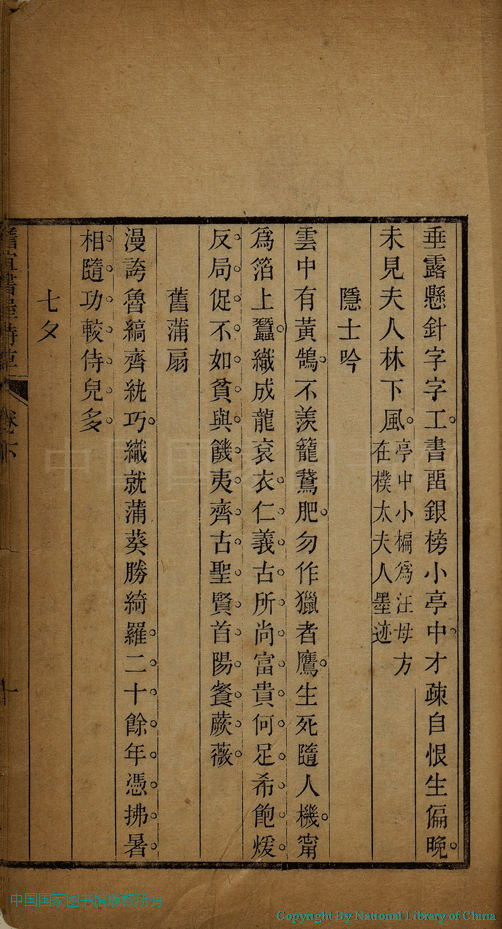 垂露懸針字字工書畱銀榜小亭中才疎自恨生偏晚
未見夫人林下風亭中小楄為汪母方
在樸太夫人墨迹
隱士吟
雲中有黃鵠不羨籠鵞肥勿作獵者鷹生死隨人機甯
爲箔上蠶織成龍袞衣仁義古所尚富貴何足希飽煖
反局促不如貧與饑夷齊古聖賢首陽餐蕨薇
舊蒲扇
漫誇魯縞齊紈巧織就蒲葵勝綺羅二十餘年憑拂暑
相隨功較侍兒多
七夕
卷下
Copyright By National Library of China